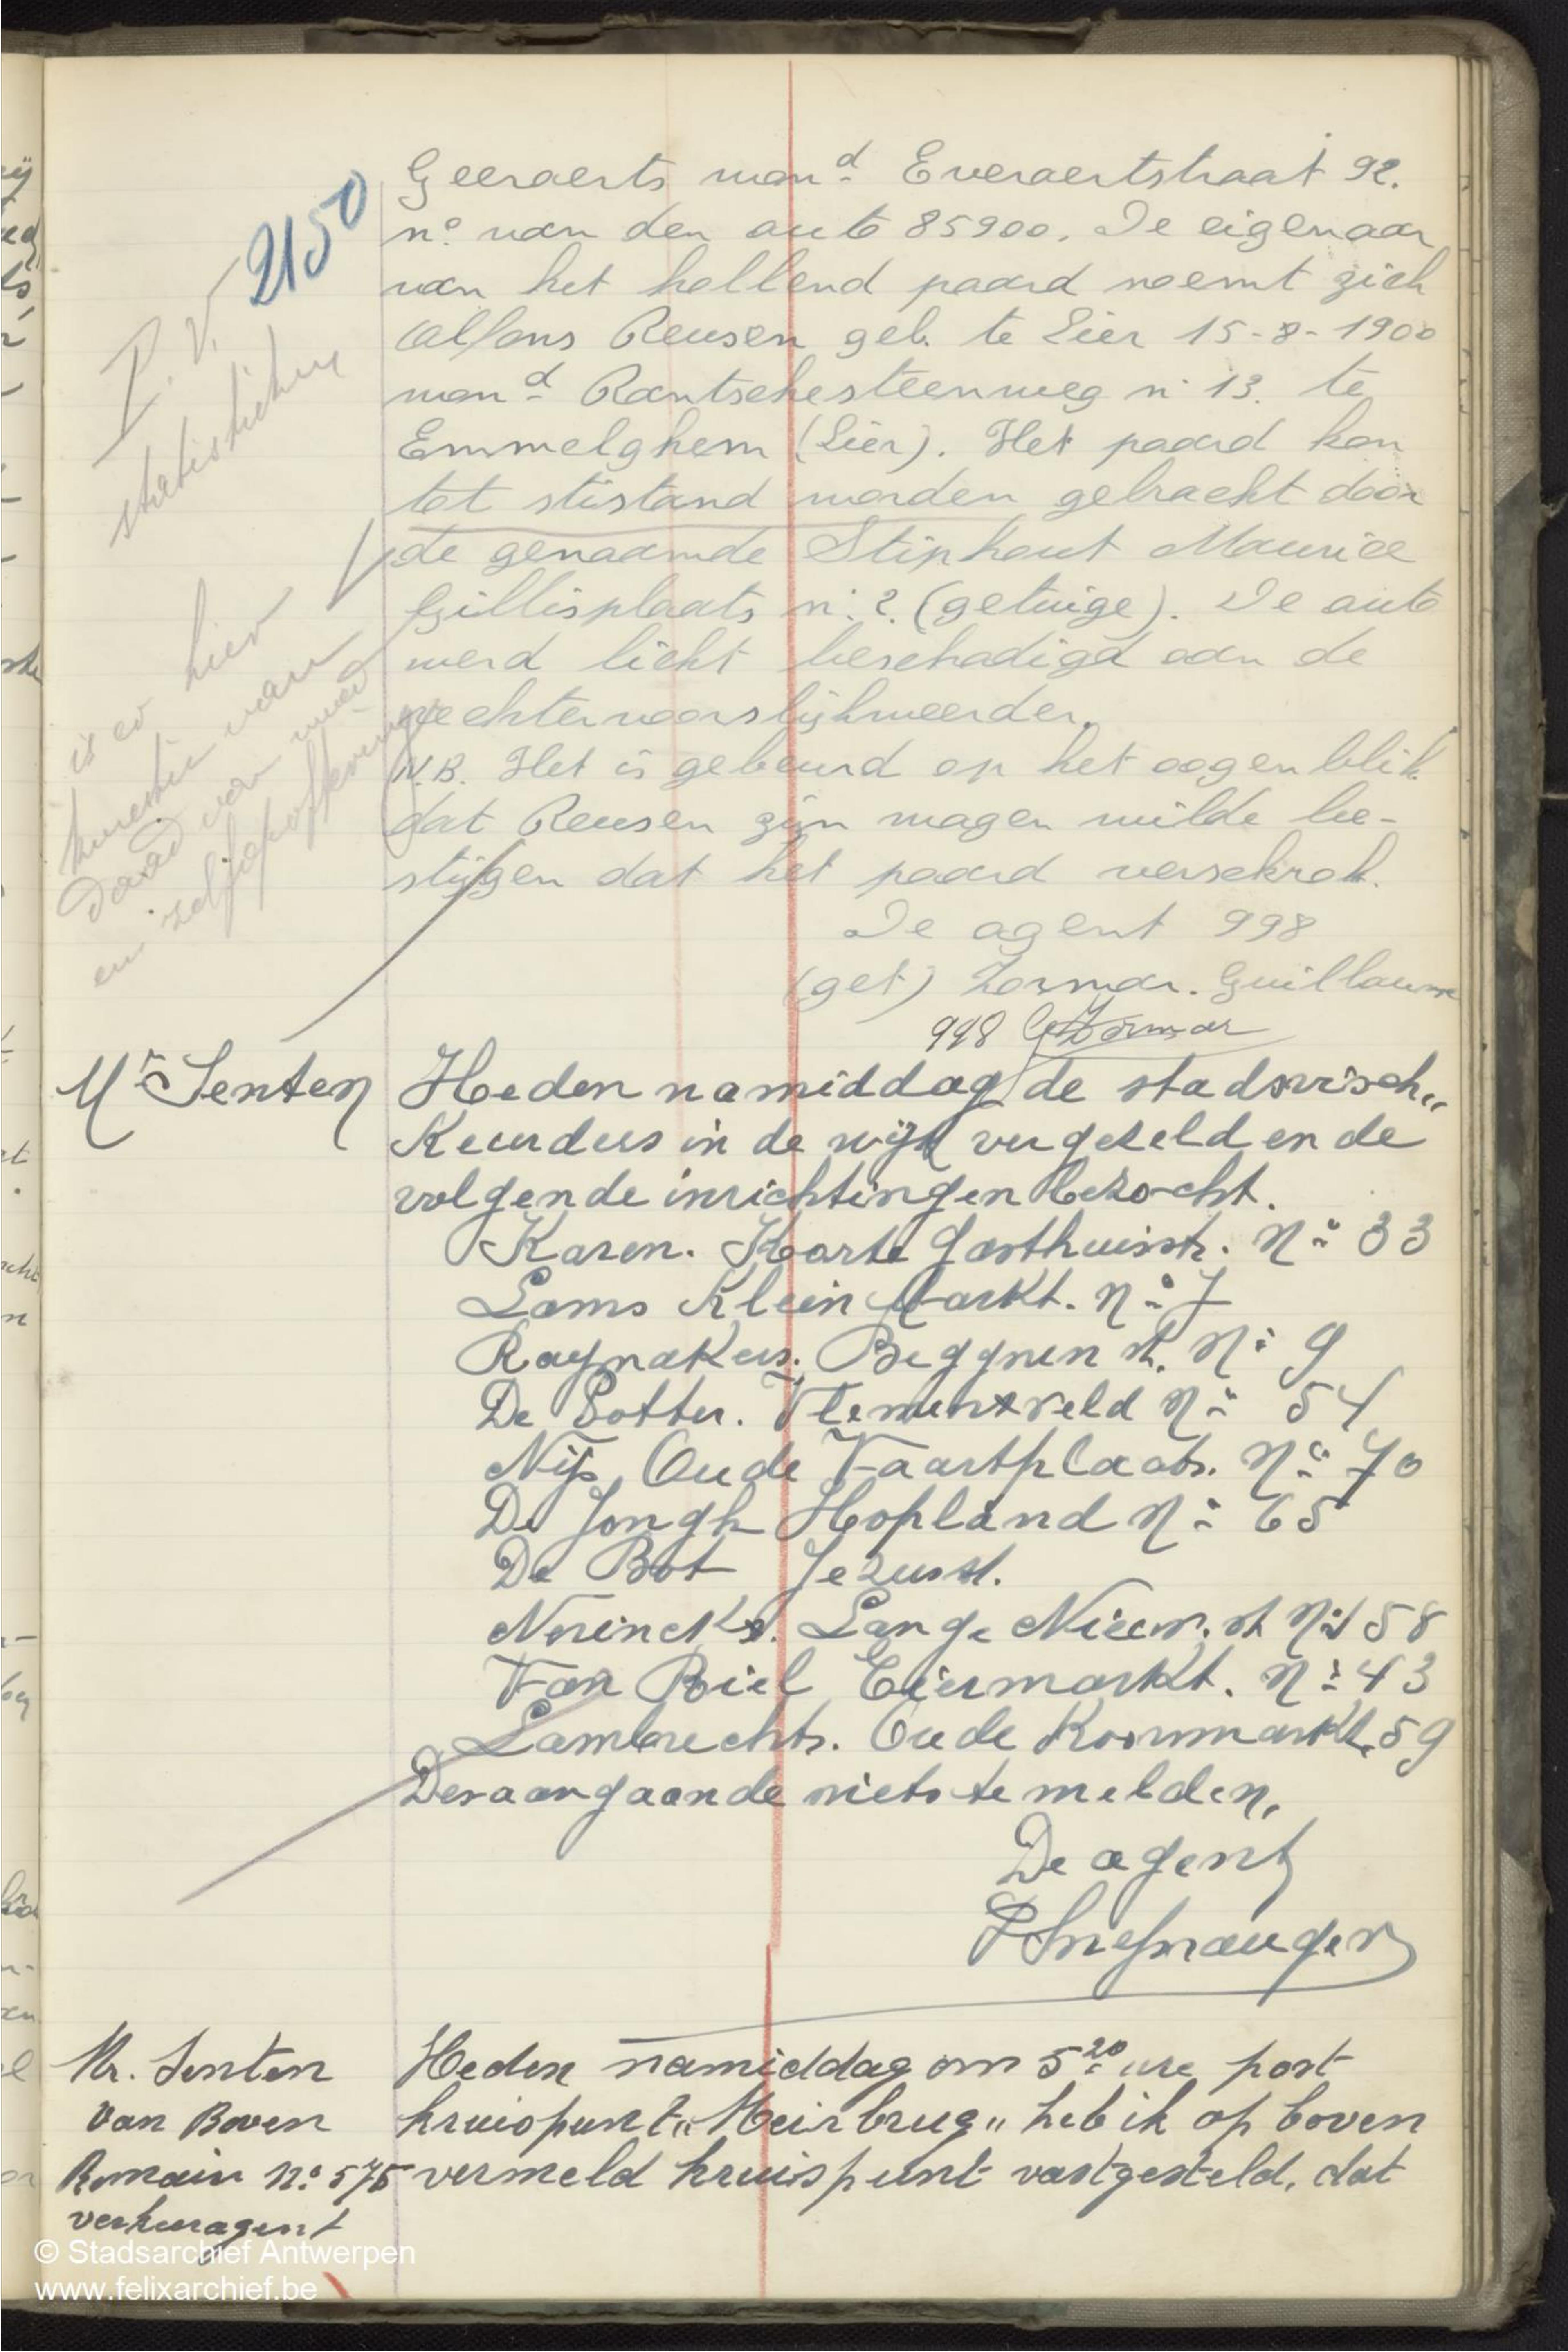 Geeraerts won^d Everaertstraat 92.
n° van den auto 85900. De eigenaar
van het hollend paard noemt zich
Alfons Reusen geb. te Lier 15-8-1900
won^d Rantschesteenweg n° 13. te
Emmelghem (Lier). Het paard kon
tot stistand worden gebracht door
de genaamde Stiphout Maurice
Gillisplaats n° 2. (getuige). De auto
werd licht beschadigd aan de
rechtervoorslijkweerder.
N.B. Het is gebeurd op het oogenblik
dat Reusen zijn wagen wilde be-
stijgen dat het paard verschrok.
De agent 998
(get) Zormar. Guillaume
998 G Zormar
2150
P.V.
statistieken
is er hier
kwestie van
daad van moed
en zelfopoffering
Mr Senten
Heden namiddag de stadsvisch„
Keurders in de wijk vergezeld en de
volgende inrichtingen bezocht.
Karen. Korte Gasthuisstr. N° 33
Lams Klein Markt. N° 7
Raymakers. Beggynen st. N° 9
De Potter. Vleminxveld N° 54
Nijs, Oude Vaartplaats. N° 70
De Jongh Hopland N° 65
De Bot Jezusst.
Nerinckx. Lange Nieuw. st N° 58
Van Biel Eiermarkt. N° 43
Lambrechts. Oude Koornmarkt, 59
Desaangaande niets te melden,
De agent
Mr. Senten
Van Boven
Romain n° 575
verkeeragent
Heden namiddag om 5^20 ure post
kruispunt „Meirbrug„ heb ik op boven
vermeld kruispunt vastgesteld, dat
© Stadsarchief Antwerpen
www.felixarchief.be